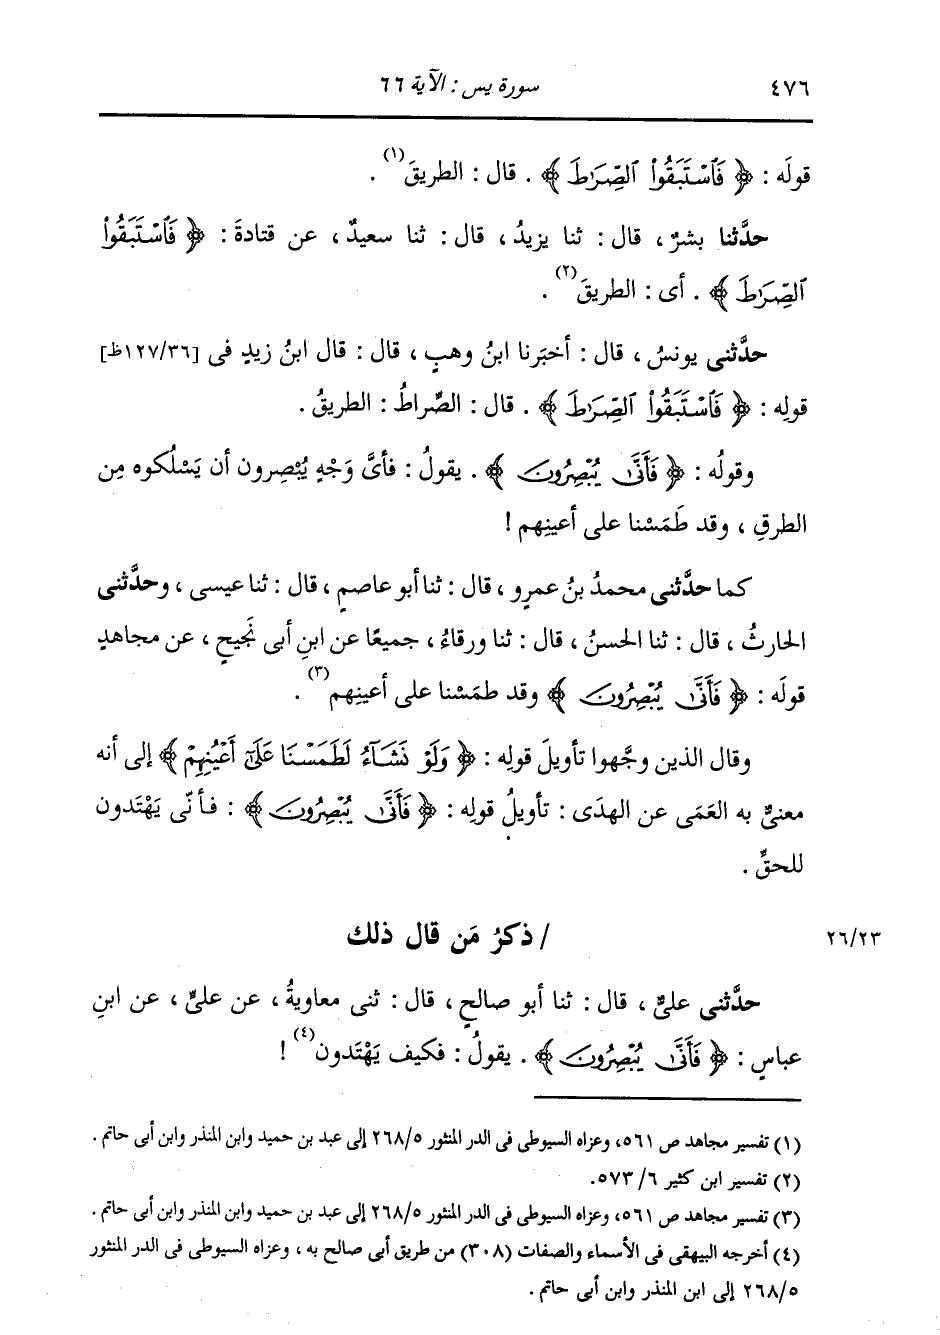 ٤٧٦ سورة يس : الآية ٦٦
قولَه : ﴿ فَٱسْتَبَقُوا۟ ٱلصِّرَٰطَ ﴾ . قال : الطريقَ(١) .
حدَّثنا بشرٌ ، قال : ثنا يزيدُ ، قال : ثنا سعيدٌ ، عن قتادةَ : ﴿ فَٱسْتَبَقُوا۟
ٱلصِّرَٰطَ ﴾ . أى : الطريقَ(٢) .
حدَّثنى يونسُ ، قال : أخبَرنا ابنُ وهبٍ ، قال : قال ابنُ زيدٍ فى [١٢٧/٣٦ظ]
قولِه : ﴿ فَٱسْتَبَقُوا۟ ٱلصِّرَٰطَ ﴾ . قال : الصِّراطُ : الطريقُ .
وقولُه : ﴿ فَأَنَّىٰ يُبْصِرُونَ ﴾ . يقولُ : فأىَّ وَجْهٍ يُبْصِرون أن يَسْلُكوه مِن
الطرقِ ، وقد طَمَسْنا على أعينِهم !
كما حدَّثنى محمدُ بنُ عمرٍو ، قال : ثنا أبو عاصمٍ ، قال : ثنا عيسى ، وحدَّثنى
الحارثُ ، قال : ثنا الحسنُ ، قال : ثنا ورقاءُ ، جميعًا عن ابنِ أبى نَجيحٍ ، عن مجاهدٍ
قولَه : ﴿ فَأَنَّىٰ يُبْصِرُونَ ﴾ وقد طمَسْنا على أعينِهم(٣) .
وقال الذين وجَّهوا تأويلَ قولِه : ﴿ وَلَوْ نَشَآءُ لَطَمَسْنَا عَلَىٰٓ أَعْيُنِهِمْ ﴾ إلى أنه
معنىٌّ به العَمَى عن الهدَى : تأويلُ قولِه : ﴿ فَأَنَّىٰ يُبْصِرُونَ ﴾ : فأنّى يَهْتَدون
للحقِّ .
/ ذكرُ مَن قال ذلك ٢٦/٢٣
حدَّثنى علىٌّ ، قال : ثنا أبو صالحٍ ، قال : ثنى معاويةُ ، عن علىٍّ ، عن ابنِ
عباسٍ : ﴿ فَأَنَّىٰ يُبْصِرُونَ ﴾ . يقولُ : فكيف يَهْتَدون(٤) !
(١) تفسير مجاهد ص ٥٦١، وعزاه السيوطى فى الدر المنثور ٢٦٨/٥ إلى عبد بن حميد وابن المنذر وابن أبى حاتم .
(٢) تفسير ابن كثير ٦/ ٥٧٣.
(٣) تفسير مجاهد ص ٥٦١، وعزاه السيوطى فى الدر المنثور ٢٦٨/٥ إلى عبد بن حميد وابن المنذر وابن أبى حاتم .
(٤) أخرجه البيهقى فى الأسماء والصفات (٣٠٨) من طريق أبى صالح به ، وعزاه السيوطى فى الدر المنثور
٢٦٨/٥ إلى ابن المنذر وابن أبى حاتم .